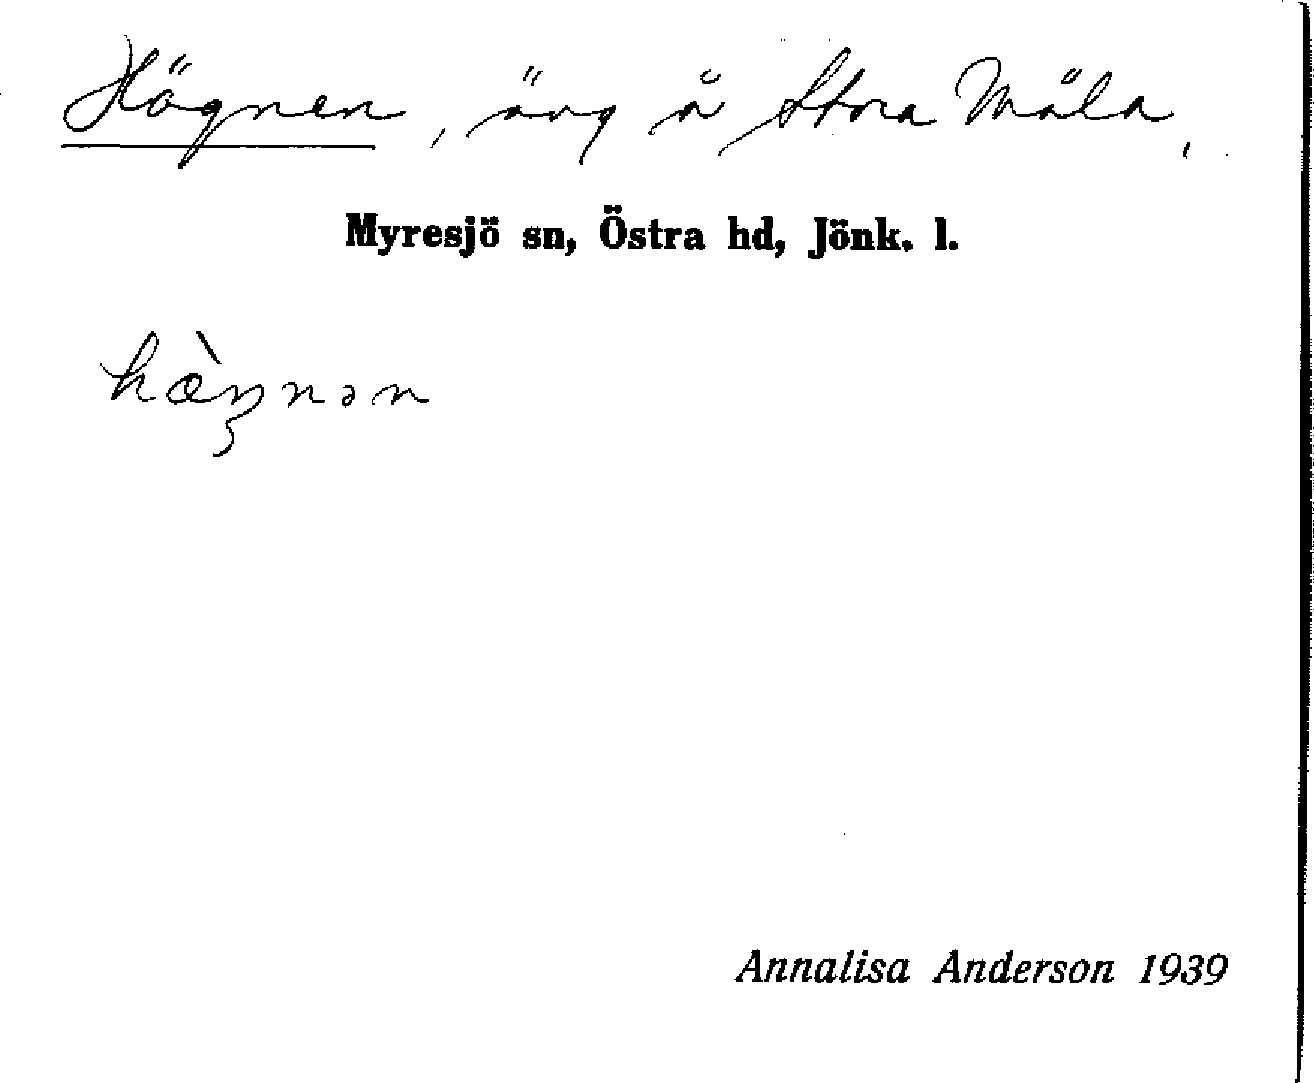 Högnen, äng å Stora Måla,
Myresjö sn, Östra hd, Jönk. l.
hœ̀ŋnən
Annalisa Anderson 1939